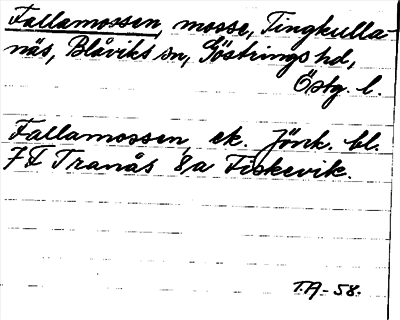 Fallamossen, mosse, Tingkulla-
näs, Blåviks sn, Göstrings hd,
Östg. l.
Fallamossen, ek. Jönk. bl.
7F Tranås 8a Fiskevik.
T.A-58.